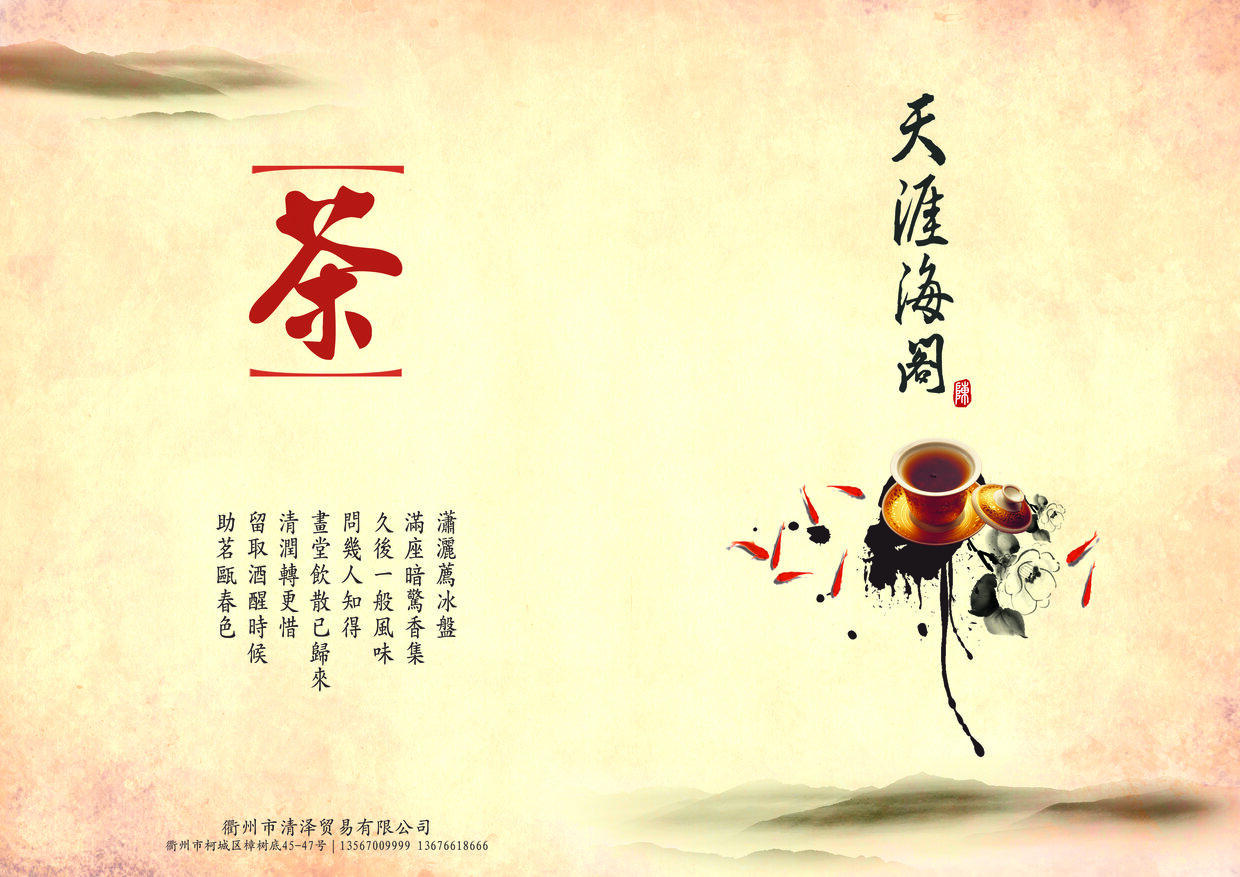 天涯海阁
陳
茶
瀟灑薦冰盤
滿座暗驚香集
久後一般風味
問幾人知得
畫堂飲散已歸來
清潤轉更惜
留取酒醒時候
助茗甌春色
衢州市清泽贸易有限公司
衢州市柯城区樟树底45-47号 | 13567009999 13676618666